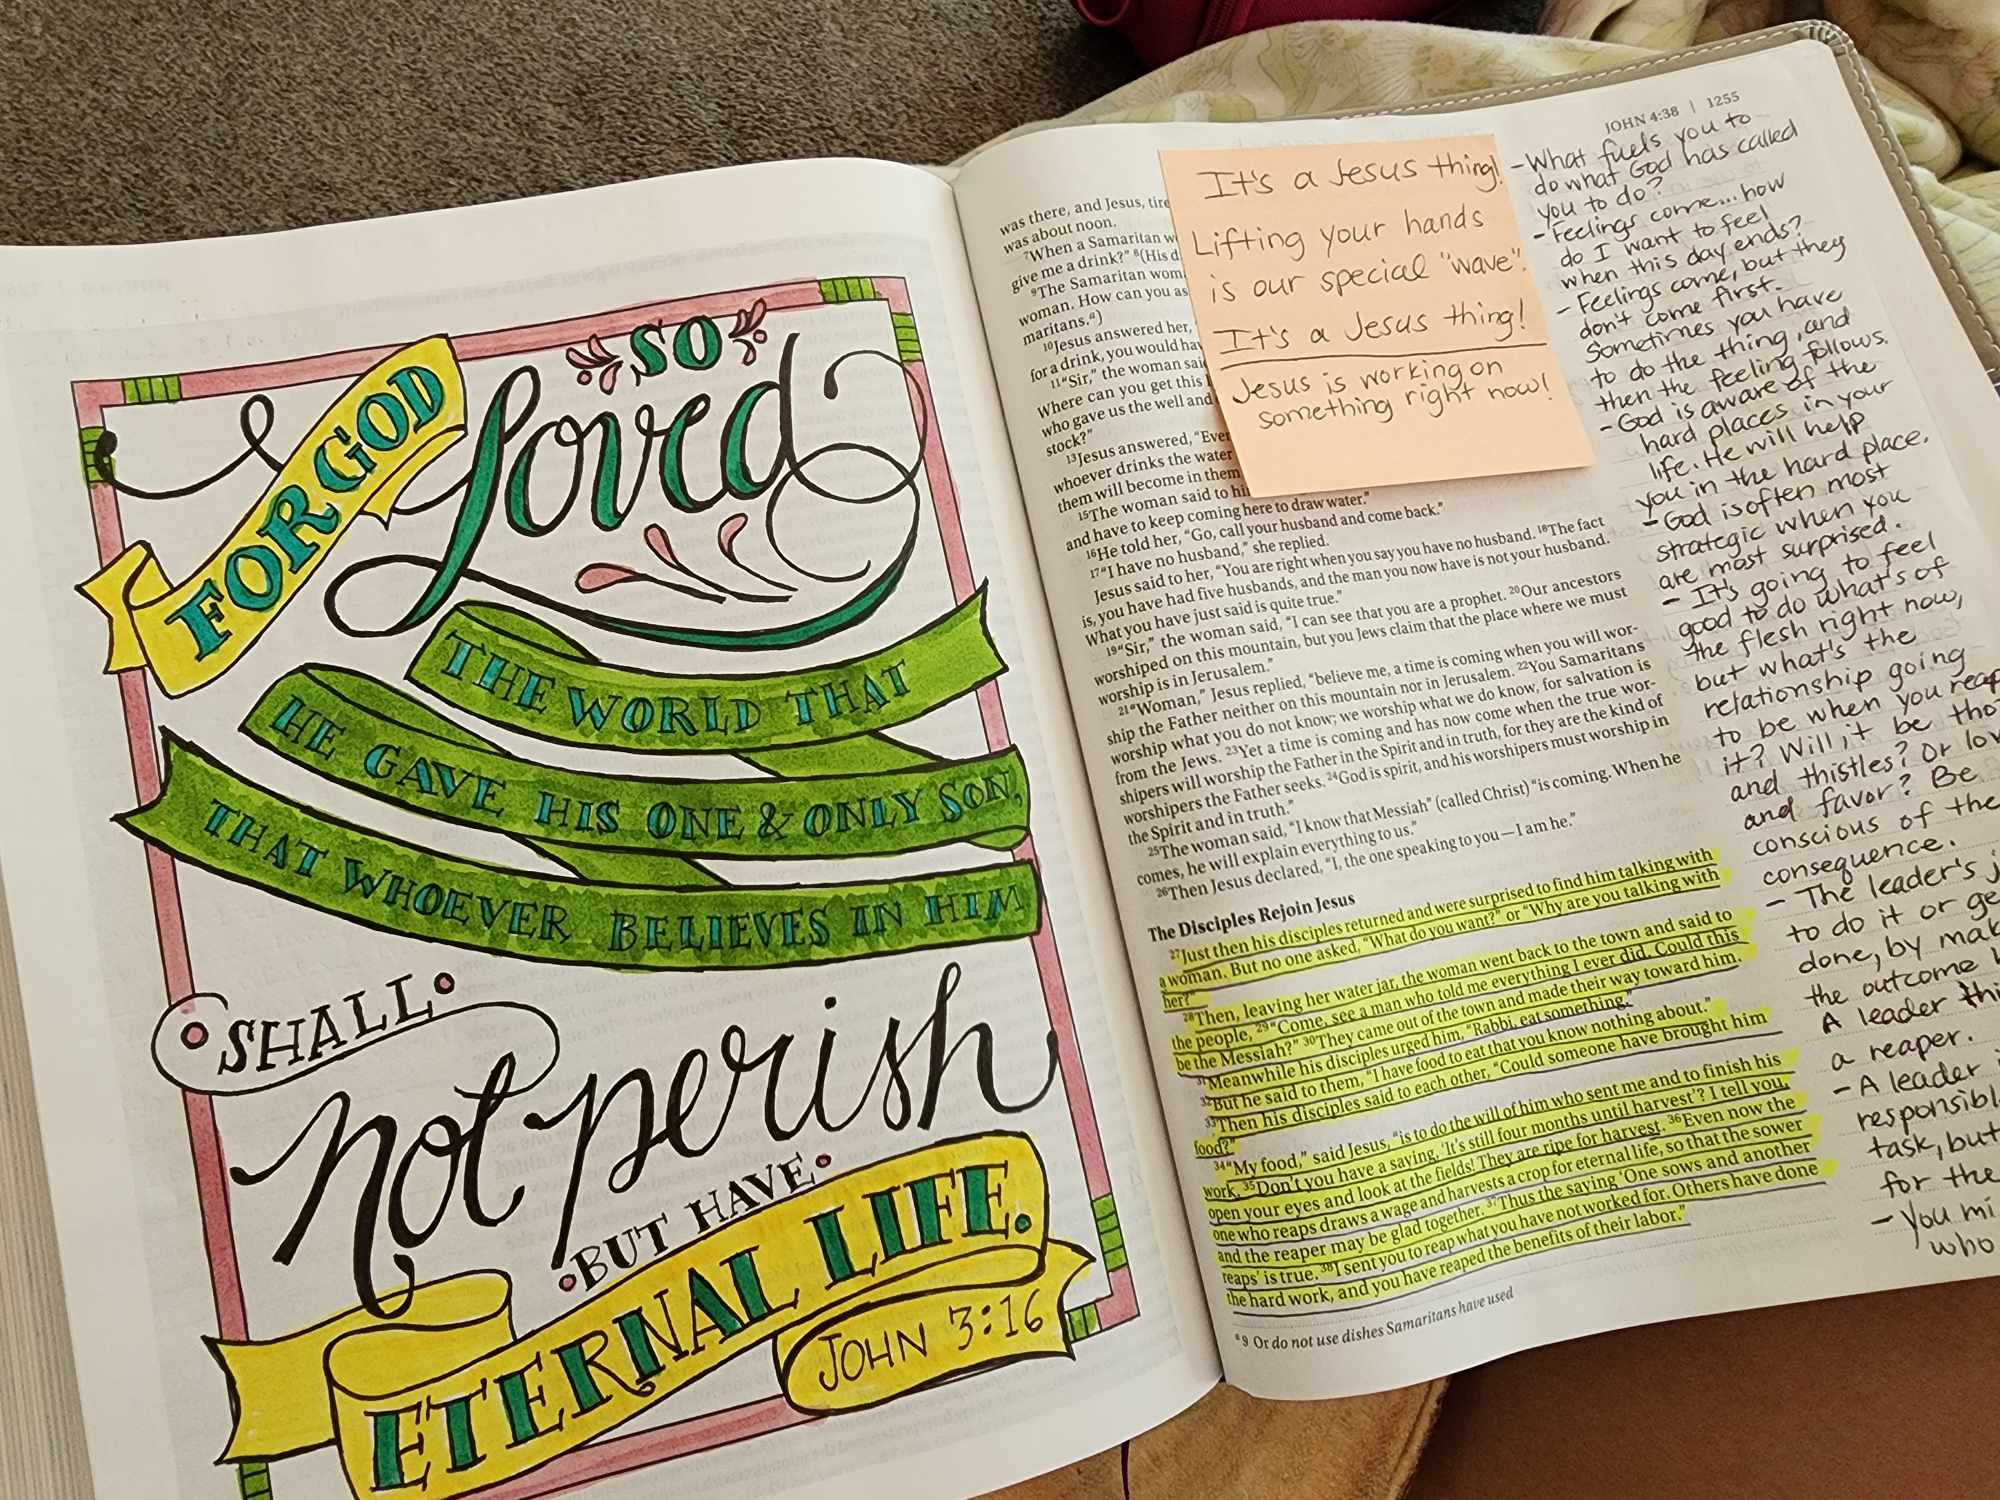 FOR GOD
SO
Loved
THE WORLD THAT
HE GAVE HIS ONE & ONLY SON,
THAT WHOEVER BELIEVES IN HIM
SHALL
not perish
BUT HAVE
ETERNAL LIFE.
JOHN 3:16
JOHN 4:38 | 1255
was there, and Jesus, tire
was about noon.
7When a Samaritan w
give me a drink?" 8(His d
9The Samaritan wom
woman. How can you as
maritans.a)
10Jesus answered her,
for a drink, you would hav
11"Sir," the woman sai
Where can you get this
who gave us the well and
stock?"
13Jesus answered, "Ever
whoever drinks the water
them will become in them
15The woman said to hi
and have to keep coming here to draw water."
16He told her, "Go, call your husband and come back."
17"I have no husband," she replied.
Jesus said to her, "You are right when you say you have no husband. 18The fact
is, you have had five husbands, and the man you now have is not your husband.
What you have just said is quite true."
19"Sir," the woman said, "I can see that you are a prophet. 20Our ancestors
worshiped on this mountain, but you Jews claim that the place where we must
worship is in Jerusalem."
21"Woman," Jesus replied, "believe me, a time is coming when you will wor-
ship the Father neither on this mountain nor in Jerusalem. 22You Samaritans
worship what you do not know; we worship what we do know, for salvation is
from the Jews. 23Yet a time is coming and has now come when the true wor-
shipers will worship the Father in the Spirit and in truth, for they are the kind of
worshipers the Father seeks. 24God is spirit, and his worshipers must worship in
the Spirit and in truth."
25The woman said, "I know that Messiah" (called Christ) "is coming. When he
comes, he will explain everything to us."
26Then Jesus declared, "I, the one speaking to you—I am he."
The Disciples Rejoin Jesus
27Just then his disciples returned and were surprised to find him talking with
a woman. But no one asked, "What do you want?" or "Why are you talking with
her?"
28Then, leaving her water jar, the woman went back to the town and said to
the people, 29"Come, see a man who told me everything I ever did. Could this
be the Messiah?" 30They came out of the town and made their way toward him.
31Meanwhile his disciples urged him, "Rabbi, eat something."
32But he said to them, "I have food to eat that you know nothing about."
33Then his disciples said to each other, "Could someone have brought him
food?"
34"My food," said Jesus, "is to do the will of him who sent me and to finish his
work. 35Don't you have a saying, 'It's still four months until harvest'? I tell you,
open your eyes and look at the fields! They are ripe for harvest. 36Even now the
one who reaps draws a wage and harvests a crop for eternal life, so that the sower
and the reaper may be glad together. 37Thus the saying 'One sows and another
reaps' is true. 38I sent you to reap what you have not worked for. Others have done
the hard work, and you have reaped the benefits of their labor."
a 9 Or do not use dishes Samaritans have used
It's a Jesus thing!
Lifting your hands
is our special "wave".
It's a Jesus thing!
Jesus is working on
something right now!
- What fuels you to
do what God has called
you to do?
- Feelings come... how
do I want to feel
when this day ends?
- Feelings come, but they
don't come first.
Sometimes you have
to do the thing, and
then the feeling follows.
- God is aware of the
hard places in your
life. He will help
you in the hard place.
- God is often most
strategic when you
are most surprised.
- It's going to feel
good to do what's of
the flesh right now,
but what's the
relationship going
to be when you reap
it? Will it be tho
and thistles? Or lov
and favor? Be
conscious of the
consequence.
- The leader's j
to do it or ge
done, by mak
the outcome
A leader thi
a reaper.
- A leader
responsibl
task, but
for the
- You mi
who